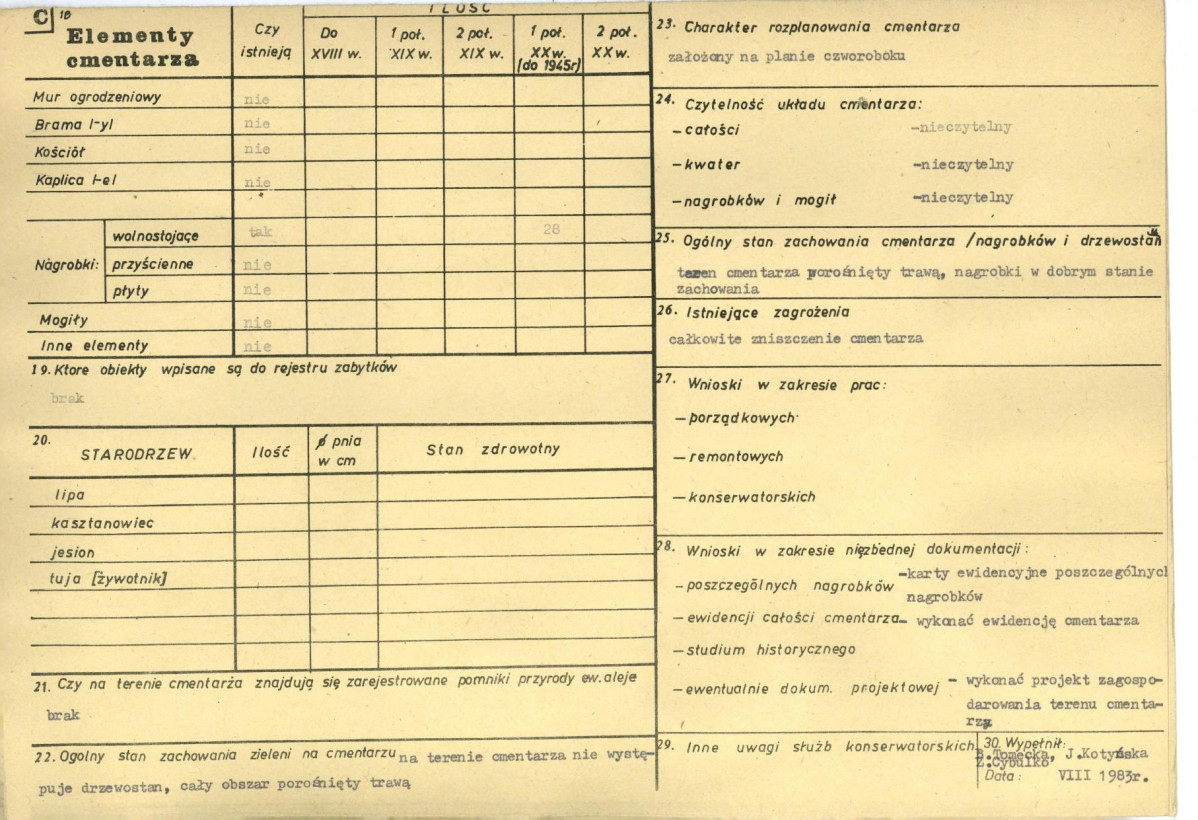 C 18
Elementy cmentarza
Czy istnieją
ILOŚĆ
Do XVIII w.
1 poł. XIX w.
2 poł. XIX w.
1 poł. XX w. (do 1945r)
2 poł. XX w.
Mur ogrodzeniowy nie
Brama /-y/ nie
Kościół nie
Kaplica /-e/ nie
Nagrobki:
wolnostojące tak 28
przyścienne nie
płyty nie
Mogiły nie
Inne elementy nie
19. Ktore obiekty wpisane są do rejestru zabytków
brak
20. STARODRZEW Ilość ø pnia w cm Stan zdrowotny
lipa
kasztanowiec
jesion
tuja [żywotnik]
21. Czy na terenie cmentarza znajdują się zarejestrowane pomniki przyrody ew. aleje
brak
22. Ogolny stan zachowania zieleni na cmentarzu na terenie cmentarza nie wystę-
puje drzewostan, cały obszar porośnięty trawą
23. Charakter rozplanowania cmentarza
założony na planie czworoboku
24. Czytelność układu cmentarza:
- całości -nieczytelny
- kwater -nieczytelny
- nagrobków i mogił -nieczytelny
25. Ogólny stan zachowania cmentarza /nagrobków i drzewostan
teren cmentarza porośnięty trawą, nagrobki w dobrym stanie
zachowania
26. Istniejące zagrożenia
całkowite zniszczenie cmentarza
27. Wnioski w zakresie prac:
- porządkowych
- remontowych
- konserwatorskich
28. Wnioski w zakresie niezbednej dokumentacji:
- poszczególnych nagrobków -karty ewidencyjne poszczególnych
nagrobków
- ewidencji całości cmentarza - wykonać ewidencję cmentarza
- studium historycznego
- ewentualnie dokum. projektowej - wykonać projekt zagospo-
darowania terenu cmenta-
rza
29. Inne uwagi służb konserwatorskich
30. Wypełnił:
B.Tomecka, J.Kotyńska
Z.Cybulko
Data: VIII 1983r.